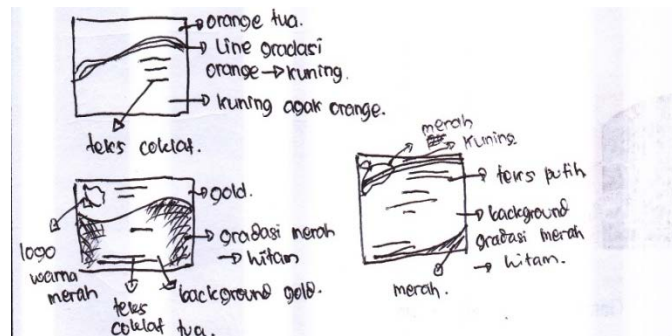 orange tua.
Line gradasi
orange → kuning.
kuning agak orange.
teks coklat.
gold.
gradasi merah
→ hitam
logo
warna
merah
teks
coklat tua.
background gold.
merah
kuning
teks putih
background
gradasi merah
→ hitam.
merah.